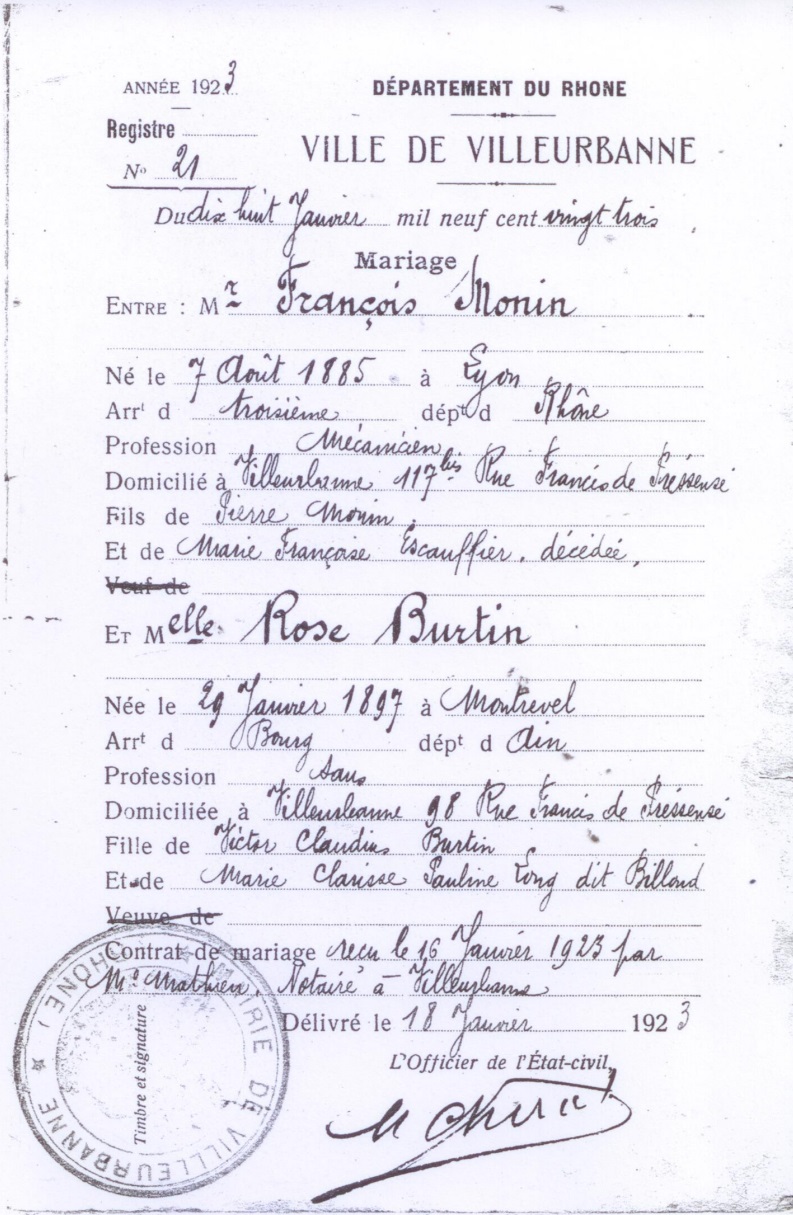 ANNÉE 1923
DÉPARTEMENT DU RHONE
Registre
VILLE DE VILLEURBANNE
No 21
Du dix huit Janvier mil neuf cent vingt trois
Mariage
ENTRE : Mr François Monin
Né le 7 Août 1885 à Lyon
Arrt d troisième dépt d Rhône
Profession Mécanicien
Domicilié à Villeurbanne 117bis Rue Francis de Pressensé
Fils de Pierre Monin,
Et de Marie Françoise Escauffier, décédée,
Veuf de
ET Melle Rose Burtin
Née le 29 Janvier 1897 à Montrevel
Arrt d Bourg dépt d Ain
Profession sans
Domiciliée à Villeurbanne 98 Rue Francis de Pressensé
Fille de Victor Claudius Burtin
Et de Marie Clarisse Pauline Long dit Billoud
Veuve de
Contrat de mariage recu le 16 Janvier 1923 par
Me Mathieu, Notaire à Villeurbanne
Délivré le 18 Janvier 1923
L'Officier de l'État-civil,
Timbre et signature
MAIRIE DE VILLEURBANNE ★ (RHONE)